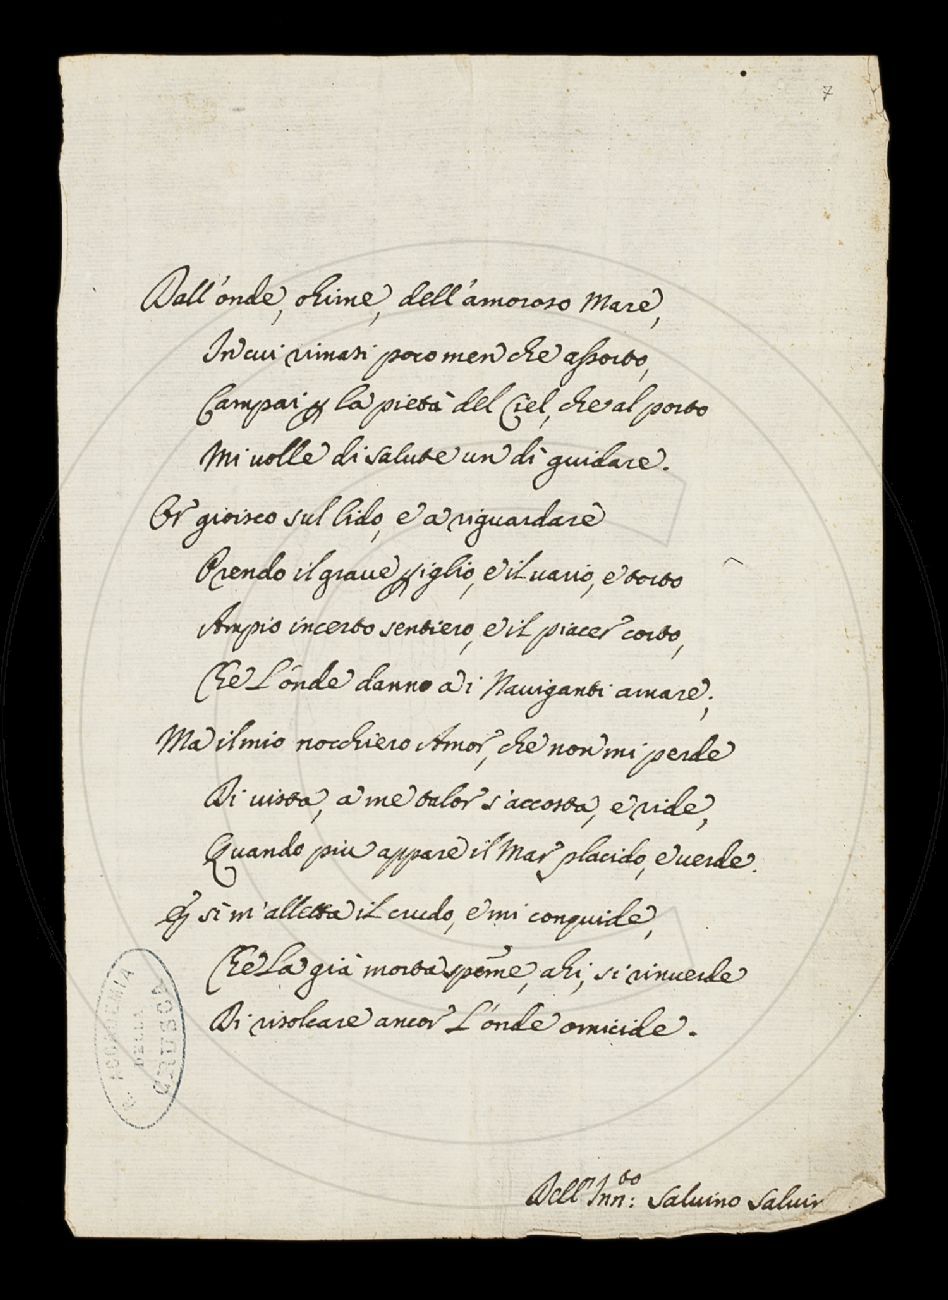 7
Dall'onde, ohime, dell'amoroso Mare,
In cui rimasi poco men che assorto,
Campai ꝑ la pietà del Ciel, che al porto
Mi volle di salute un dì guidare.
Or gioisco sul lido, e a riguardare
Prendo il grave ꝑiglio, e il vario, e torto
Ampio incerto sentiero, e il piacer corto,
Che l'onde danno a i Naviganti amare;
Ma il mio nocchiero Amor, che non mi perde
Di vista, a me talor s'accosta, e ride,
Quando più appare il Mar placido, e verde.
E sì m'alletta il crudo, e mi conquide,
Che la già morta speme, ahi, si rinverde
Di risolcare ancor l'onde omicide.
R. ACCADEMIA
DELLA
CRUSCA
Dell'Inn.to: Salvino Salvin